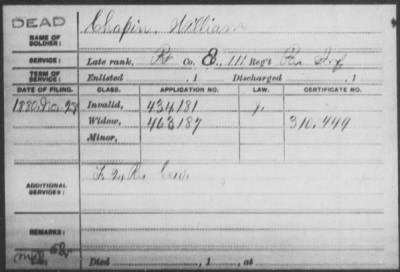 DEAD
NAME OF SOLDIER: Chapin, William
SERVICE: Late rank, Pvt Co. E, 111 Reg't Pa Inf
TERM OF SERVICE: Enlisted , 1 Discharged , 1
DATE OF FILING. CLASS. APPLICATION NO. LAW. CERTIFICATE NO.
1880, Nov. 29 Invalid, 434181
Widow, 463187 310,449
Minor,
ADDITIONAL SERVICES: F. 2, Pa. Cav.
REMARKS:
Died , 1 , at